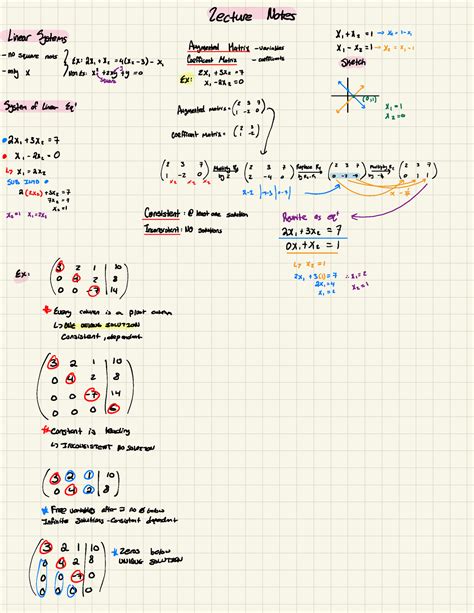 Lecture Notes
Linear Systems
- no square roots
- only x
Ex: 2x₁ + x₂ = 4(x₂ - 3) - x₁
Non Ex:
Augmented Matrix - variables
Coefficient Matrix - coefficients
Ex: 2x₁ + 3x₂ = 7
x₁ - 2x₂ = 0
x₁ + x₂ = 1 → x₂ = 1 - x₁
x₁ - x₂ = 1
Sketch
x₁ = 1
x₂ = 0
System of Linear Eqⁿ
2x₁ + 3x₂ = 7
x₁ - 2x₂ = 0
↳ x₁ = 2x₂
SUB INTO
2(2x₂) + 3x₂ = 7
7x₂ = 7
x₂ = 1
x₂ = 1 x₁ = 2x₂
Augmented matrix = (2 3 7
1 -2 0)
Coefficient matrix = (2 3
1 -2)
(2 3 7
1 -2 0)
Multiply R₂ by 2
(2 3 7
2 -4 0)
(2 3 7
0 -7 -7)
Multiply
(2 3 7
0 1 1)
Consistent: @ least one solution
Inconsistent: NO solutions
Rewrite as eqⁿ
2x₁ + 3x₂ = 7
0x₁ + x₂ = 1
↳ x₂ = 1
2x₁ + 3(1) = 7
2x₁ = 4
x₁ = 2
∴ x₁ = 2
x₂ = 1
Ex:
3 2 1 | 10
0 4 2 | 8
0 0 -7 | 14
* Every column is a pivot column
↳ ONE UNIQUE SOLUTION
Consistent, dependent
3 2 1 10
0 4 2 8
0 0 -7 14
0 0 0 6
* Constant is leading
↳ INCONSISTENT NO SOLUTION
3 2 1 | 10
0 4 2 | 8
* Free variables after no below
Infinite Solutions - Consistent dependent
3 2 1 | 10
0 4 2 | 8
0 0 -7 | 0
0 0 0 | 0
* Zero below
UNIQUE SOLUTION